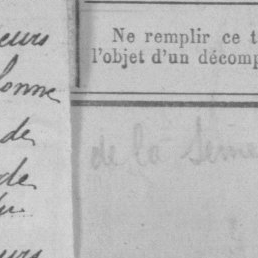 eurs
onne
de
de
Ne remplir ce t
l'objet d'un décomp
de la Seme